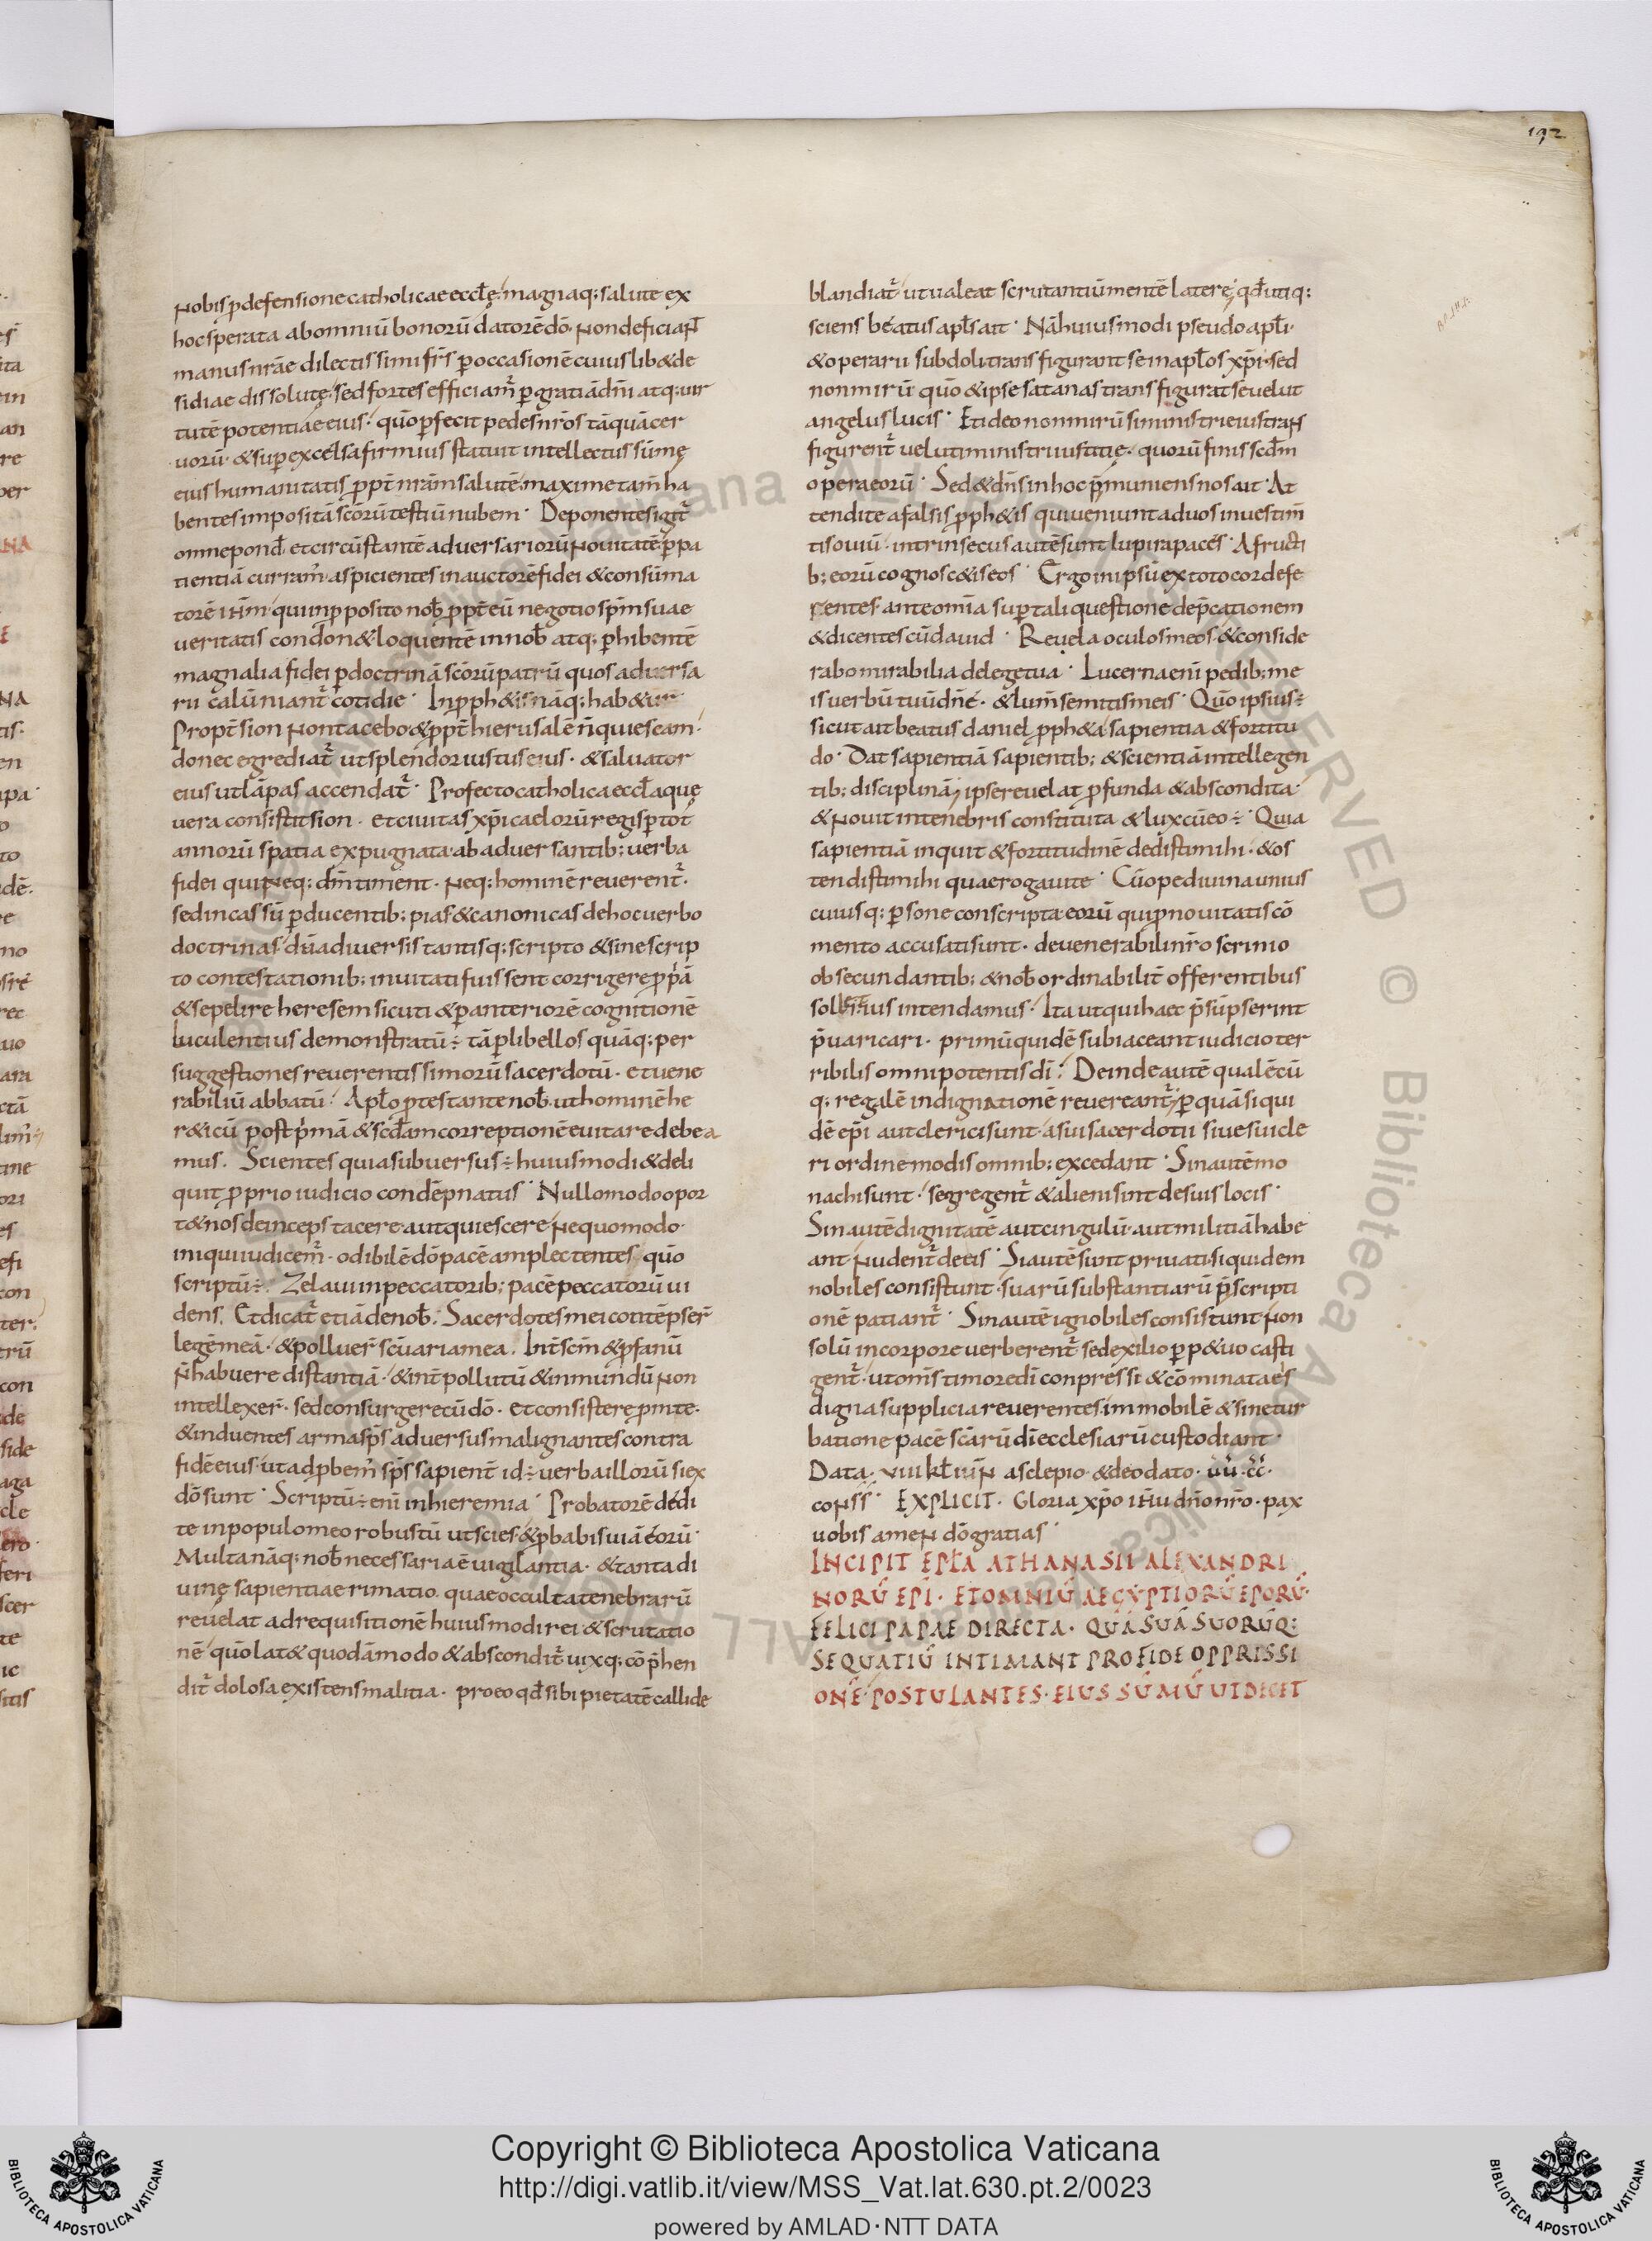 192
nobis pdefensione catholicae eccłę. magnaq; salute ex
hoc sperata abomniū bonorū datorē dō. Non deficiaɴt̃
manus nr̄ae dilectissimi fr̄s p occasionē cuiuslib& de
sidiae dissolutę. sed fortes efficiam̃ p gratiā dn̄i atq; uir
tutē potentiae eius. quō pfecit pedes nr̄os tāquā cer
uorū. & sup excelsa firmius statuit intellectus sūmę
eius humanitatis ppt̄ nr̄am salutē. maxime tam̄ ha
bentes impositā sc̄orū testiū nubem. Deponentes igit̃
omne pond̄. et circūstantē aduersariorū nouitatē. p pa
tientiā curram̃. aspicientes in auctorē fidei & consūma
torē ih̄m. qui in pposito nob̄ ppt̄ eū negotio sp̄m suae
ueritatis condon& loquentē in nob̄ atq; phibentē
magnalia fidei p doctrinā sc̄orū patrū quos aduersa
rii calūniant̃ cotidie. In pph&is nāq; hab&ur
Propt̄ sion non tacebo & ppt̄ hierusalē n̄ quiescam.
donec egrediat̃ ut splendor iustus eius. & saluator
eius ut lāpas accendat̃. Profecto catholica eccła quę
uera consistit sion. et ciuitas xp̄i caelorū regis p tot
annorū spatia expugnata ab aduersantib; uerba
fidei qui neq; dm̄ timent. neq; hominē reuerent̃.
sed in cassū pducentib; pias & canonicas de hoc uerbo
doctrinas dū a diuersis tantisq; scripto & sine scrip
to contestationib; inuitati fuissent corrigere ppā
& sepelire heresem sicuti & p anteriorē cognitionē
luculentius demonstratū÷ tā p libellos quāq; per
suggestiones reuerentissimorū sacerdotū. et uene
rabiliū abbatū. Apłō ptestante nob̄. ut hominē he
r&icū post p̄mā & scd̄am correptionē euitare debea
mus. Scientes quia subuersus÷ huiusmodi & deli
quit pprio iudicio condēpnatus. Nullo modo opor
t& nos deinceps tacere. aut quiescere. ne quomodo.
iniqui iudicem̃. odibilē dō pacē amplectentes. quō
scriptū÷. Zelaui in peccatorib; pacē peccatorū ui
dens. Et dicat̃ etiā de nob̄. Sacerdotes mei contēpser̄
legē meā. & polluer̄ sc̄uaria mea. Int̄ sc̄m & pfanū
n̄ habuere distantiā. & int̄ pollutū & inmundū non
intellexer̄. sed consurgere cū dō. et consistere p inte.
& induentes arma sp̄s aduersus malignantes contra
fidē eius. ut ad pbem̃ sp̄s sapient̄ id÷ uerba illorū si ex
dō sunt. Scriptū÷ eni in hieremia. Probatorē dedi
te in populo meo robustū ut scies & pbabis uiā eorū.
Multa nāq; nob̄ necessaria ē uigilantia. & tanta di
uinę sapientiae rimatio. quae occulta tenebrarū
reuelat ad requisitionē huiusmodi rei & scrutatio
nē. quō lat& quodāmodo & abscondit̃ uixq; cōp̄hen
dit̃ dolosa existens malitia. pro eo qd̄ sibi pietatē callide
blandiat̃. ut ualeat scrutantiū mentē latere. qd̄ utiq;
sciens beatus apłs ait. Nā huiusmodi pseudo apłi.
& operarii subdoli transfigurant se in apłos xp̄i. sed
non mirū quō & ipse satanas transfigurat se uelut
angelus lucis. Et ideo non mirū si ministri eius trans
figurent̃ uelut ministri iustitię. quorū finis scd̄m
opera eorū. Sed & dn̄s in hoc p̄muniens nos ait. At
tendite a falsis pph&is qui ueniunt ad uos in uestim̄
tis ouiū. intrinsecus autē sunt lupi rapaces. A fructi
b; eorū cognosc&is eos. Ergo in ipsū ex toto corde fe
rentes. ante omīa sup tali questione dep̄cationem
& dicentes cū dauid. Reuela oculos meos & conside
rabo mirabilia de lege tua. Lucerna enī pedib; me
is uerbū tuū dn̄e. & lum̄ semitis meis. Quō ipsius÷
sicut ait beatus daniel pph&a sapientia & fortitu
do. Dat sapientiā sapientib; & scientiā intellegen
tib; disciplinā, ipse reuelat pfunda & abscondita.
& nouit in tenebris constituta & lux cū eo÷. Quia
sapientiā inquit & fortitudinē dedisti mihi. & os
tendisti mihi quae rogaui te. Cū ope diuina unius
cuiusq; psone conscripta eorū qui p nouitatis cō
mento accusati sunt. de uenerabili nr̄o scrinio
obsecundantib; & nob̄ ordinabilit̄ offerentibus
sollicitius intendamus. Ita ut qui haec p̄sūpserint
p̄uaricari. primū quidē subiaceant iudicio ter
ribilis omnipotentis dī. Deinde autē qualēcū
q; regalē indignationē reuereant̃, p quā si qui
dē ep̄i aut clerici sunt. a sui sacerdotii siue sui cle
ri ordine modis omnib; excedant. Sin autē mo
nachi sunt. segregent̃ & alieni sint de suis locis.
Sin autē dignitatē aut cingulū. aut militiā habe
ant. nudent̃ de eis. Si autē sunt priuati. siquidem
nobiles consistunt. suarū substantiarū p̄scripti
onē patiant̃. Sin autē ignobiles consistunt. non
solū in corpore uerberent̃. sed exilio p p&uo casti
gent̃. ut om̄s timore dī conpressi & cōminata eis
digna supplicia reuerentes. immobilē & sine tur
batione pacē sc̄arū dī ecclesiarū custodiant.
Data. viii kł iun̄ asclepio. & deodato. uū. cc̄.
conss. EXPLICIT. Gloria xp̄o ih̄u dn̄o nr̄o. pax
uobis amen dō gratias
INCIPIT EPŁA ATHANASII ALEXANDRI
NORŪ EPĪ. ET OMNIŪ AEGYPTIORŪ EPORŪ.
FELICI PAPAE DIRECTA. QUĀ SUĀ SUORŪQ:
SEQUATIŪ INTIMANT PRO FIDE OPPRISSI
ONĒ. POSTULANTES. EIUS SŪMŪ UT DECET
Copyright © Biblioteca Apostolica Vaticana
http://digi.vatlib.it/view/MSS_Vat.lat.630.pt.2/0023
powered by AMLAD·NTT DATA
BIBLIOTECA APOSTOLICA VATICANA
BIBLIOTECA APOSTOLICA VATICANA